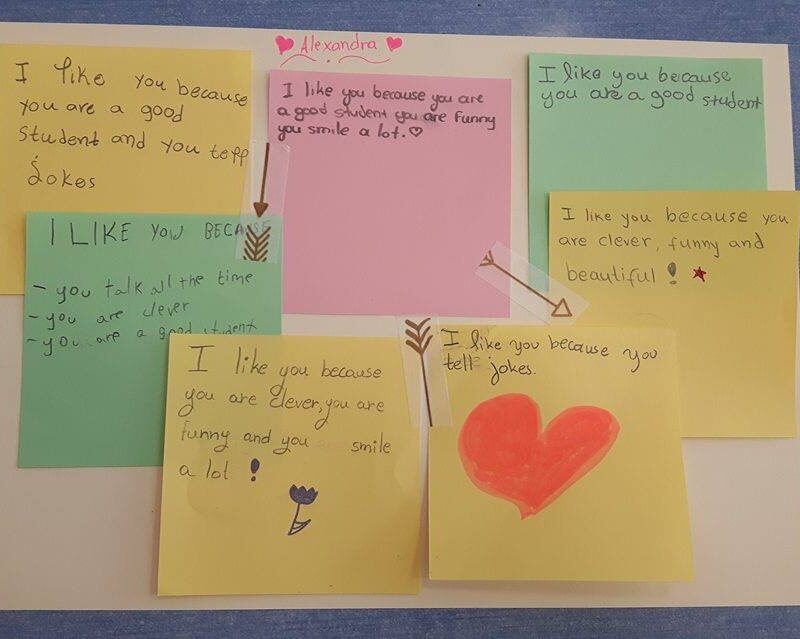 Alexandra
I like you because
you are a good
student and you tell
Jokes
I like you because you are
a good student you are funny
you smile a lot.
I like you because
you are a good student
I LIKE YOU BECAUSE
- you talk all the time
- you are clever
- you are a good student
I like you because you
are clever, funny and
beautiful!
I like you because
you are clever, you are
funny and you smile
a lot!
I like you because you
tell jokes.